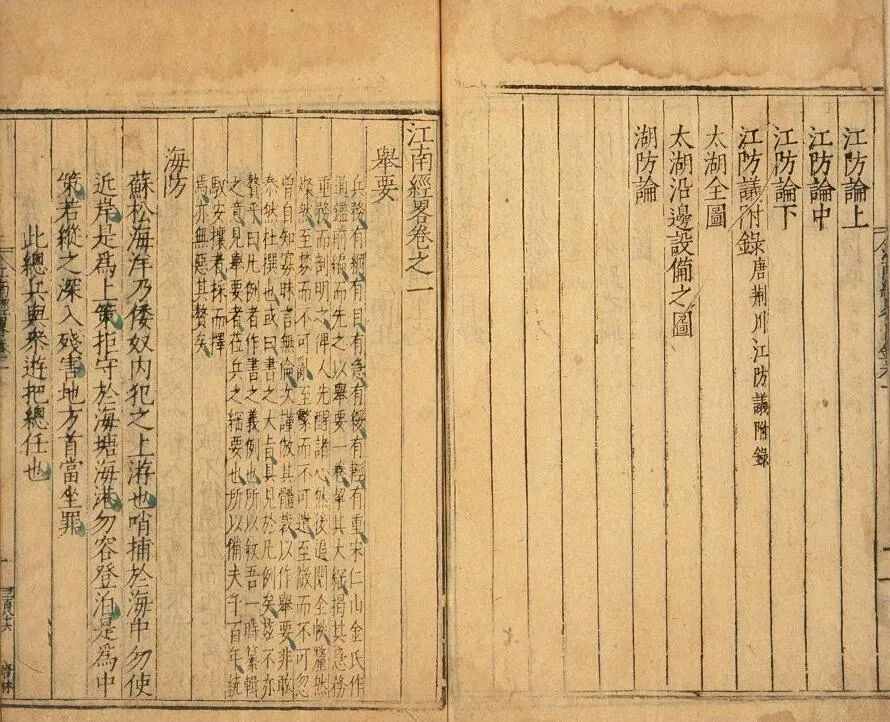 江防論上
江防論中
江防論下
江防議附錄 唐荆川江防議附錄
太湖全圖
太湖沿邊設備之圖
湖防論
江南經畧卷之一
舉要
兵務有綱有目有急有緩有輕有重宋仁山金氏作
通鑑前編而先之以舉要一卷挈其大綱揭其急務
重務而剖明之俾人先醒諸心然後追閱全帙釐然
燦然至棼而不可亂至繁而不可遺至微而不可忽
曾自知寡昧言無倫次謹倣其體裁以作舉要非敢
泰然杜撰也或曰書之大旨具見於凡例矣茲不亦
贅乎曰凡例者作書之義例也所以叙吾一時纂輯
之意見舉要者莅兵之綱要也所以備夫千百年統
馭安攘者採而擇
焉亦無惡其贅矣
海防
蘇松海洋乃倭奴内犯之上游也哨捕於海中勿使
近岸是為上策拒守於海塘海港勿容登泊是為中
策若縱之深入殘害地方首當坐罪
此總兵與參遊把總任也
江南經畧卷一
一